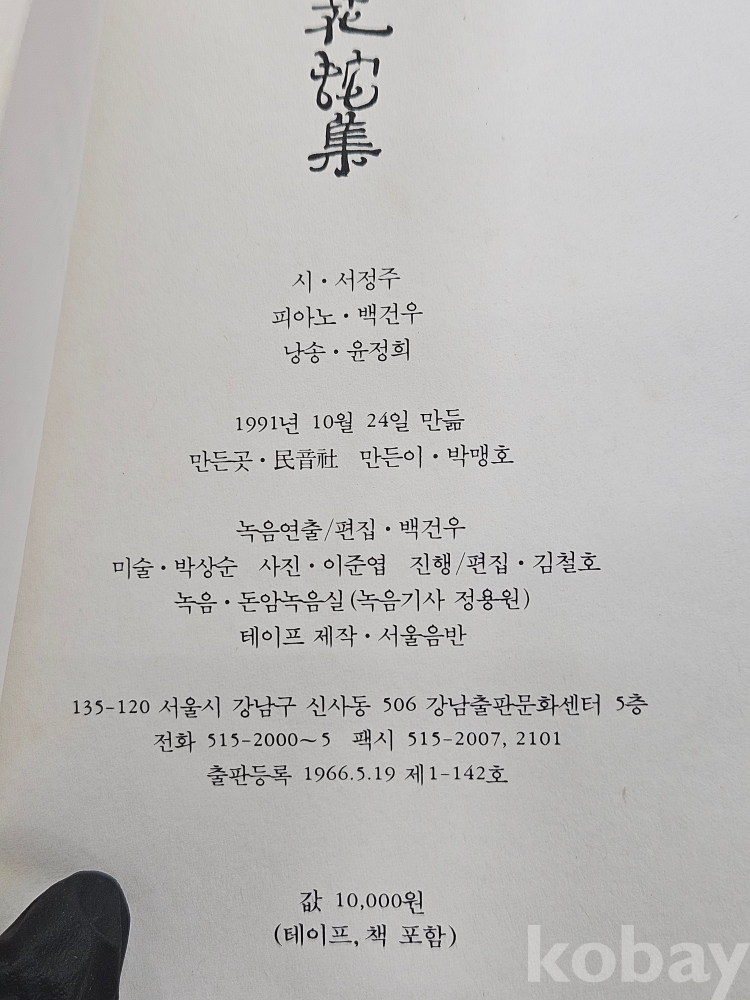 花
蛇
集
시·서정주
피아노·백건우
낭송·윤정희
1991년 10월 24일 만듦
만든곳·民音社 만든이·박맹호
녹음연출/편집·백건우
미술·박상순 사진·이준엽 진행/편집·김철호
녹음·돈암녹음실(녹음기사 정용원)
테이프 제작·서울음반
135-120 서울시 강남구 신사동 506 강남출판문화센터 5층
전화 515-2000~5 팩시 515-2007, 2101
출판등록 1966.5.19 제1-142호
값 10,000원
(테이프, 책 포함)
kobay